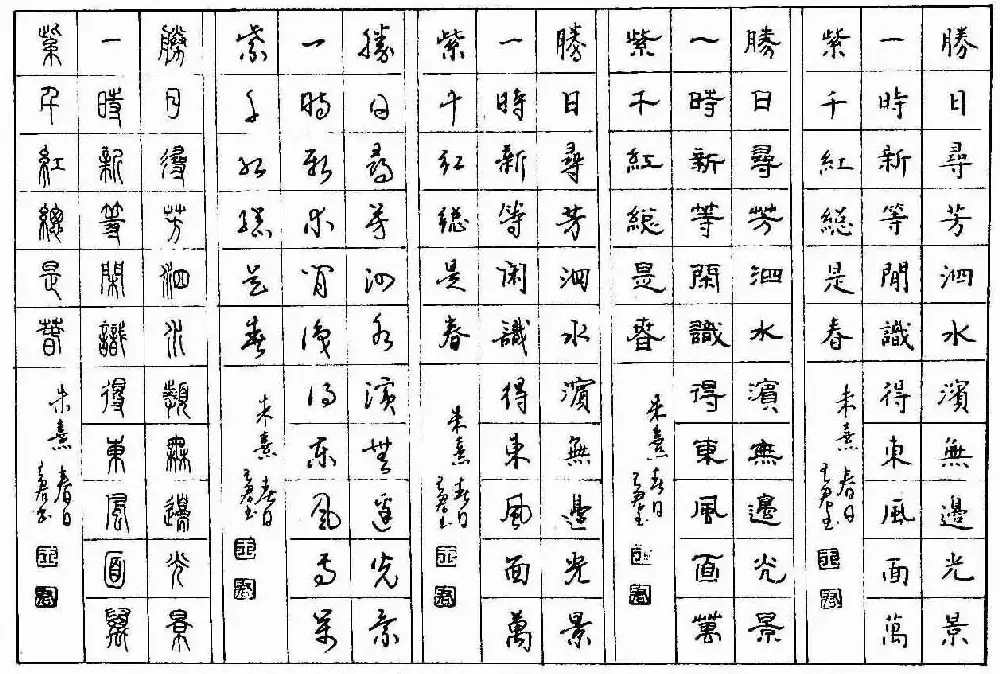 勝日尋芳泗水濱無邊光景
一時新等閒識得東風面萬
紫千紅總是春 朱熹春日
勝日尋芳泗水濱無邊光景
一時新等閑識得東風面萬
紫千紅總是春 朱熹春日
勝日尋芳泗水濱無邊光景
一時新等閑識得東風面萬
紫千紅總是春 朱熹春日
勝日尋芳泗水濱無邊光景
一時新等閒識得東風面萬
紫千紅總是春 朱熹春日
勝日尋芳泗水濱無邊光景
一時新等閑識得東風面萬
紫千紅總是春 朱熹春日